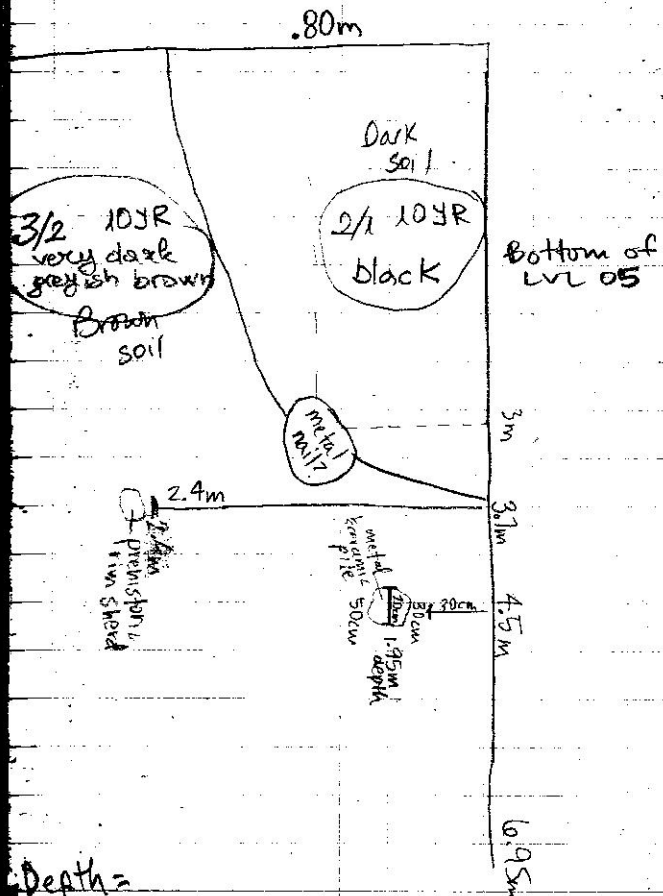 .80m
Dark
soil
3/2 10YR
very dark
greyish brown
Brown
soil
2/1 10YR
black
Bottom of
LVL 05
metal
nail?
3m
2.4m
3.7m
prehistoric
rim sherd
metal
ceramic
pile
50cm
30cm
4.5m
1.95m
depth
6.95m
Depth=